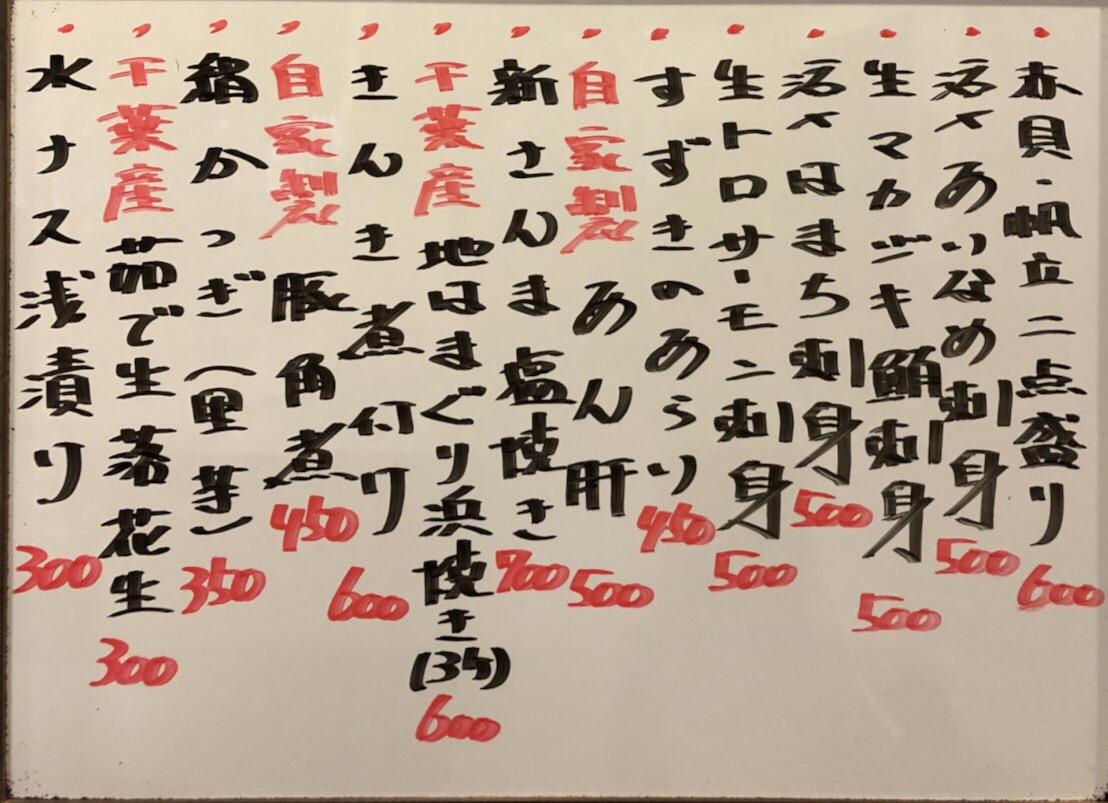 赤貝・帆立二点盛り 600
活〆あいなめ刺身 500
生マカジキ鮪刺身 500
活〆はまち刺身 500
生トロサーモン刺身 500
すずきのあらい 450
自家製 あん肝 500
新さんま塩焼き 700
千葉産 地はまぐり浜焼き(3ケ) 600
きんき煮付け 600
自家製 豚角煮 450
絹かつぎ(里芋) 350
千葉産 茹で生落花生 300
水ナス浅漬け 300